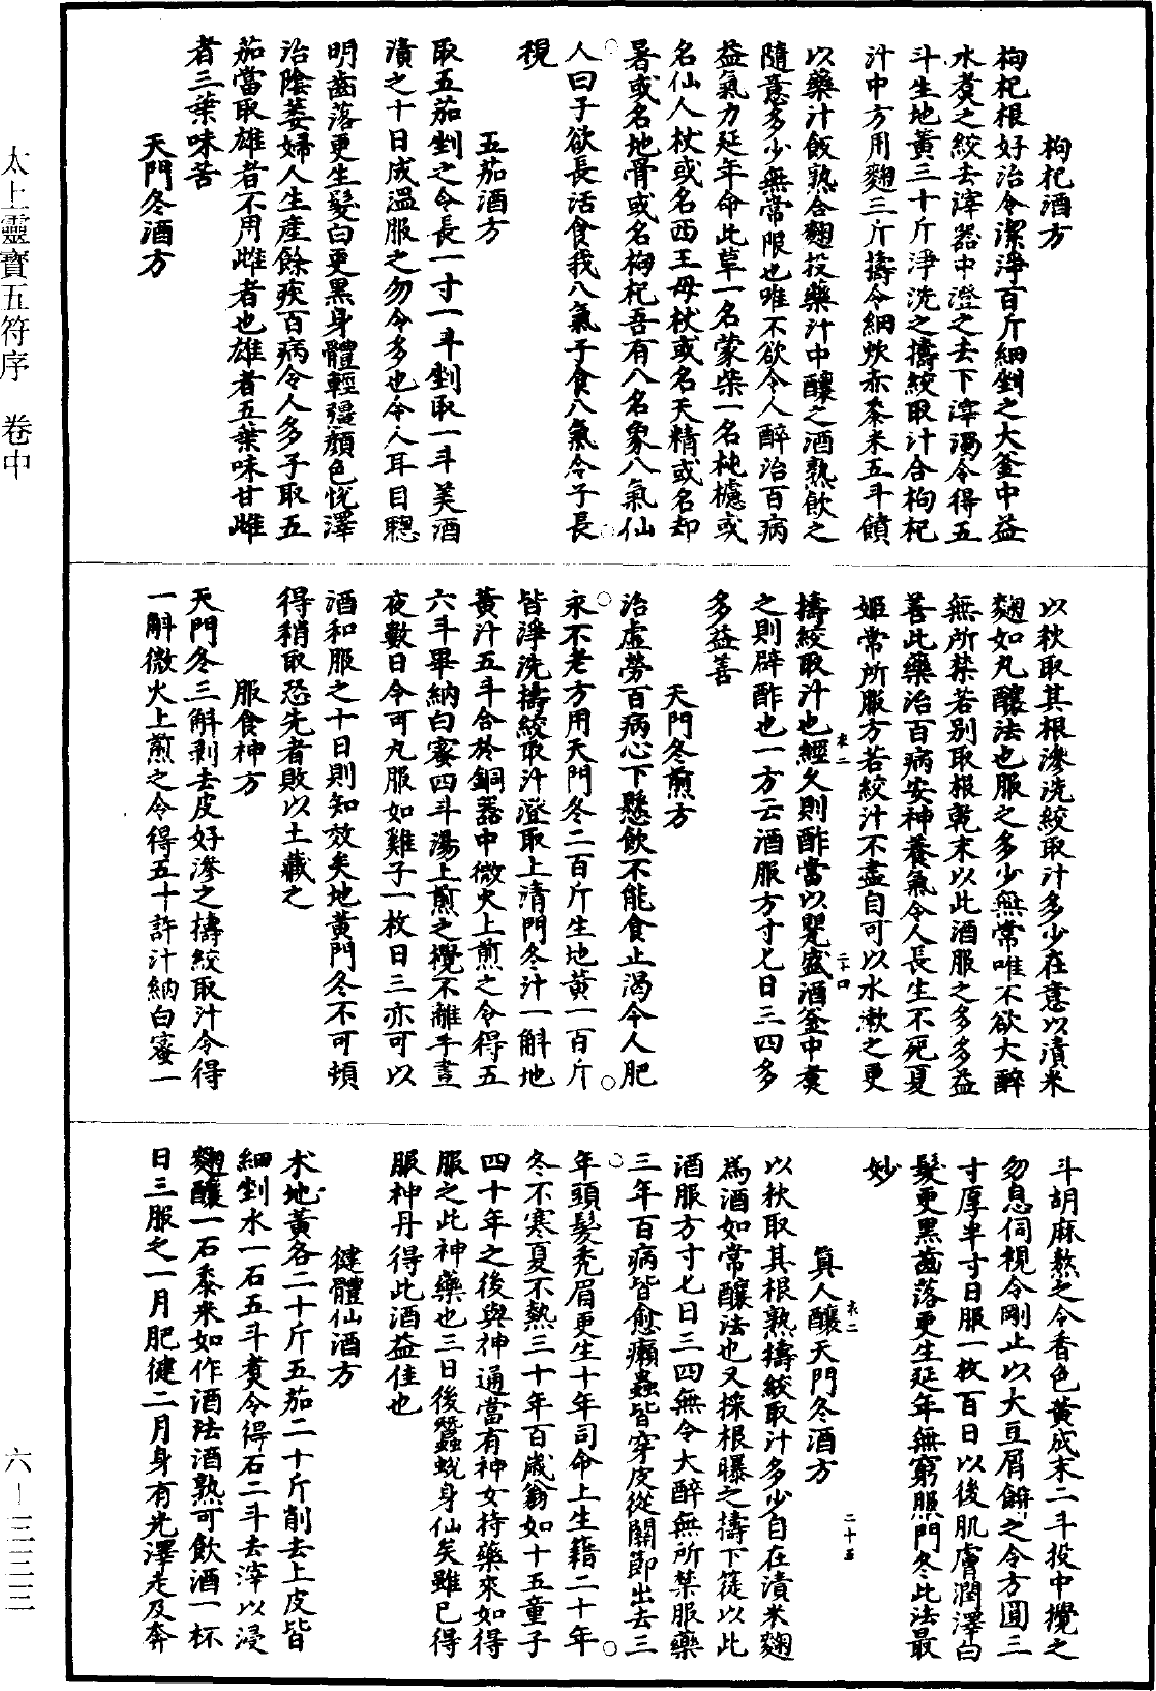 枸杞酒方
枸杞根好治令潔淨百斤細剉之大釜中益
水煑之絞去滓器中澄之去下滓濁令得五
斗生地黃三十斤淨洗之擣絞取汁合枸杞
汁中方用麴三斤擣令細炊赤黍米五斗饙
以藥汁飯熟合麴投藥汁中釀之酒熟飲之
隨意多少無常限也唯不欲令人醉治百病
益氣力延年命此草一名蒙柴一名杶櫖或
名仙人杖或名西王母杖或名天精或名却
暑或名地骨或名枸杞吾有八名象八氣仙
人曰子欲長活食我八氣子食八氣令子長
視
五茄酒方
取五茄剉之令長一寸一斗剉取一斗美酒
漬之十日成溫服之勿令多也令人耳目聰
明齒落更生髮白更黑身體輕彊顏色悅澤
治陰萎婦人生產餘疾百病令人多子取五
茄當取雄者不用雌者也雄者五葉味甘雌
者三葉味苦
天門冬酒方
以秋取其根滲洗絞取汁多少在意以漬米
麴如丸釀法也服之多少無常唯不欲大醉
無所禁若別取根乾末以此酒服之多多益
善此藥治百病安神養氣令人長生不死夏
姬常所服方若絞汁不盡自可以水漱之更
擣絞取汁也經久則酢當以甖盛酒釜中煑
之則辟酢也一方云酒服方寸匕日三四多
多益善
天門冬煎方
治虛勞百病心下懸飲不能食止渴令人肥
永不老方用天門冬二百斤生地黃一百斤
皆淨洗擣絞取汁澄取上清門冬汁一斛地
黃汁五斗合於銅器中微火上煎之令得五
六斗畢納白蜜四斗湯上煎之攪不離手晝
夜數日令可丸服如雞子一枚日三亦可以
酒和服之十日則知效矣地黃門冬不可頓
得稍取恐先者敗以土藏之
服食神方
天門冬三斛剥去皮好滲之擣絞取汁令得
一斛微火上煎之令得五十許汁納白蜜一
斗胡麻熬之令香色黃成末二斗投中攪之
勿息伺視令剛止以大豆屑餅之令方圓三
寸厚半寸日服一枚百日以後肌膚潤澤白
髮更黑齒落更生延年無窮照門冬此法最
妙
真人釀天門冬酒方
以秋取其根熟擣絞取汁多少自在漬米麴
為酒如常釀法也又採根曝之擣下簁以此
酒服方寸匕日三四無令大醉無所禁服藥
三年百病皆愈癩蟲皆穿皮從關節出去三
年頭髮禿眉更生十年司命上生籍二十年
冬不寒夏不熱三十年百歲翁如十五童子
四十年之後與神通當有神女持藥來如得
服之此神藥也三日後蠶蛻身仙矣雖已得
服神丹得此酒益佳也
健體仙酒方
术地黃各二十斤五茄二十斤削去上皮皆
細剉水一石五斗煑令得石二斗去滓以浸
麴釀一石黍米如作酒法酒熟可飲酒一杯
日三服之一月肥健二月身有光澤走及奔
太上靈寶五符序　卷中
六—三三三